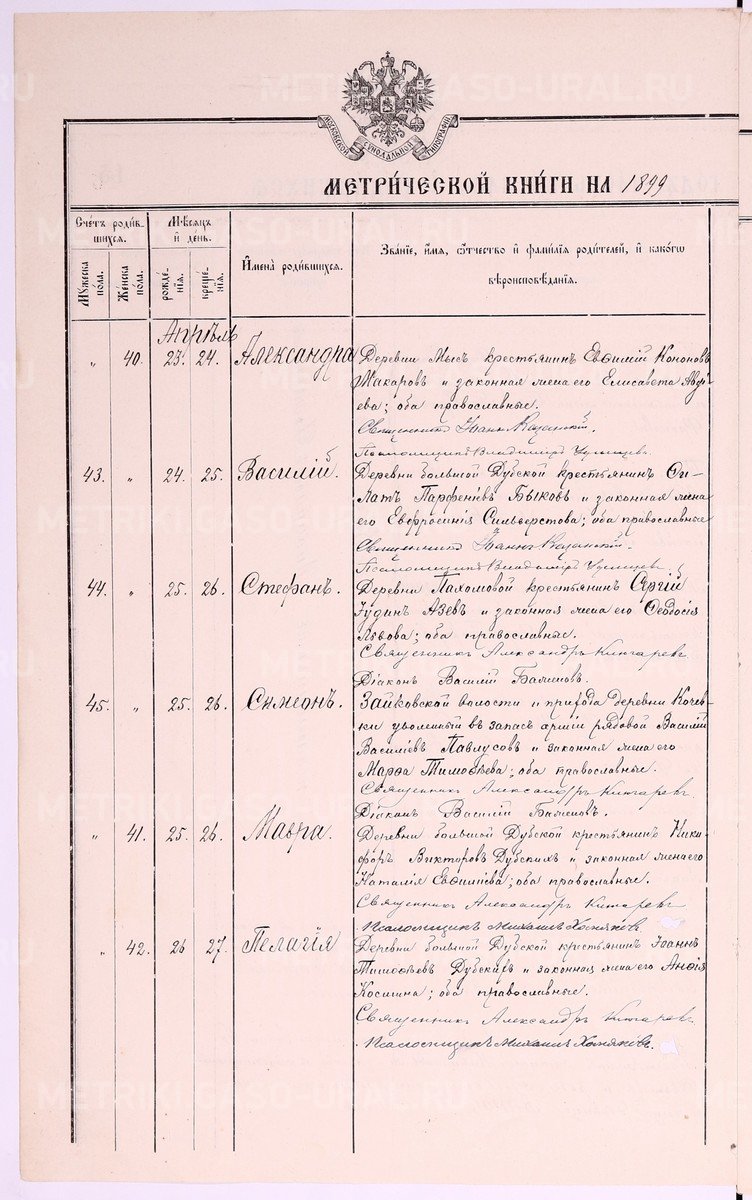 METRIKI.GASO-URAL.RU
МОСКОВСКОЙ СѴНОДАЛЬНОЙ ТИПОГРАФІИ
МЕТРИ́ЧЕСКОЙ КНИ́ГИ НА 1899
Сче́тъ роди́вшихся.
Мꙋ́жеска по́ла.
Же́нска по́ла.
Мѣ́сяцъ и҆ де́нь.
рожде́нїѧ.
креще́нїѧ.
И҆мена̀ роди́вшихсѧ.
Зва́нїе, и҆́мѧ, ѻ҆́тчество и҆ фами́лїѧ роди́телей, и҆ како́гѡ
вѣроисповѣ́данїѧ.
Апрѣль
" 40. 23. 24. Александра Деревни Мысъ крестьянинъ Евѳимій Кононовъ
Макаровъ и законная жена его Елисавета
ева; оба православные.
Священникъ Іоаннъ Казанскій.
Псаломщикъ Владиміръ
43. " 24. 25. Василій. Деревни большой Дубской крестьянинъ Фи-
латъ Парфеніевъ Быковъ и законная жена
его Евфросинія Сильверстова; оба православные
Священникъ Іоаннъ Казанскій.
Псаломщикъ Владиміръ
44. " 25. 26. Стефанъ. Деревни Пахомовой крестьянинъ Сергій
Іудинъ Азевъ и законная жена его Ѳеодосія
Львова; оба православные.
Священникъ Александръ Кинтаревъ
Діаконъ Василій
45. " 25. 26. Симеонъ. Зайковской волости и прихода деревни Кочев-
ки уволенный въ запасъ арміи рядовой Василій
Василіевъ Павлусовъ и законная жена его
Марѳа Тимоѳѣева; оба православные.
Священникъ Александръ Кинтаревъ.
Діаконъ Василій
" 41. 25. 26. Мавра. Деревни большой Дубской крестьянинъ Ники-
форъ Викторовъ Дубскихъ и законная жена его
Наталія Евѳиміева; оба православные.
Священникъ Александръ Кинтаревъ
Псаломщикъ Михаилъ Хомяковъ
" 42. 26 27. Пелагія Деревни большой Дубской крестьянинъ Іоаннъ
Тимоѳѣевъ Дубскихъ и законная жена его Анѳія
Космина; оба православные.
Священникъ Александръ Кинтаревъ
Псаломщикъ Михаилъ Хомяковъ.